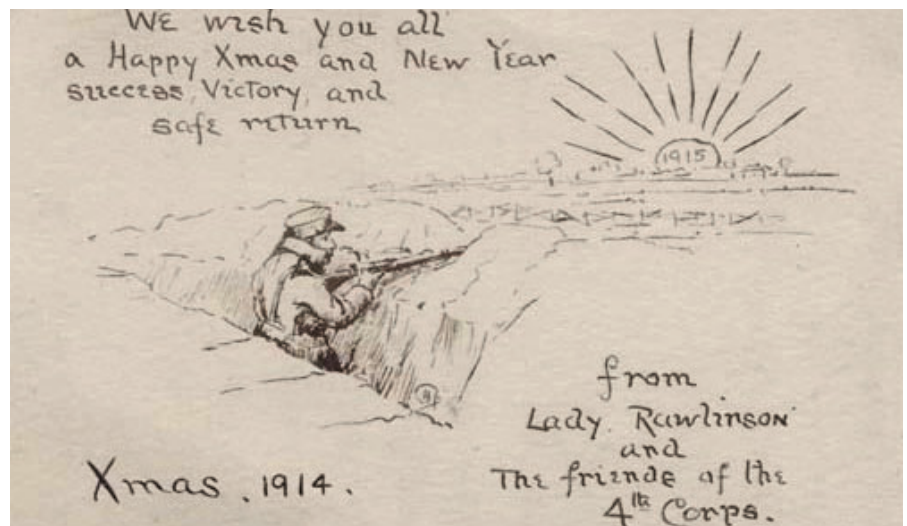 We wish you all
a Happy Xmas and New Year
success, Victory, and
safe return
1915
from
Lady Rawlinson
and
The friends of the
4th Corps.
Xmas. 1914.